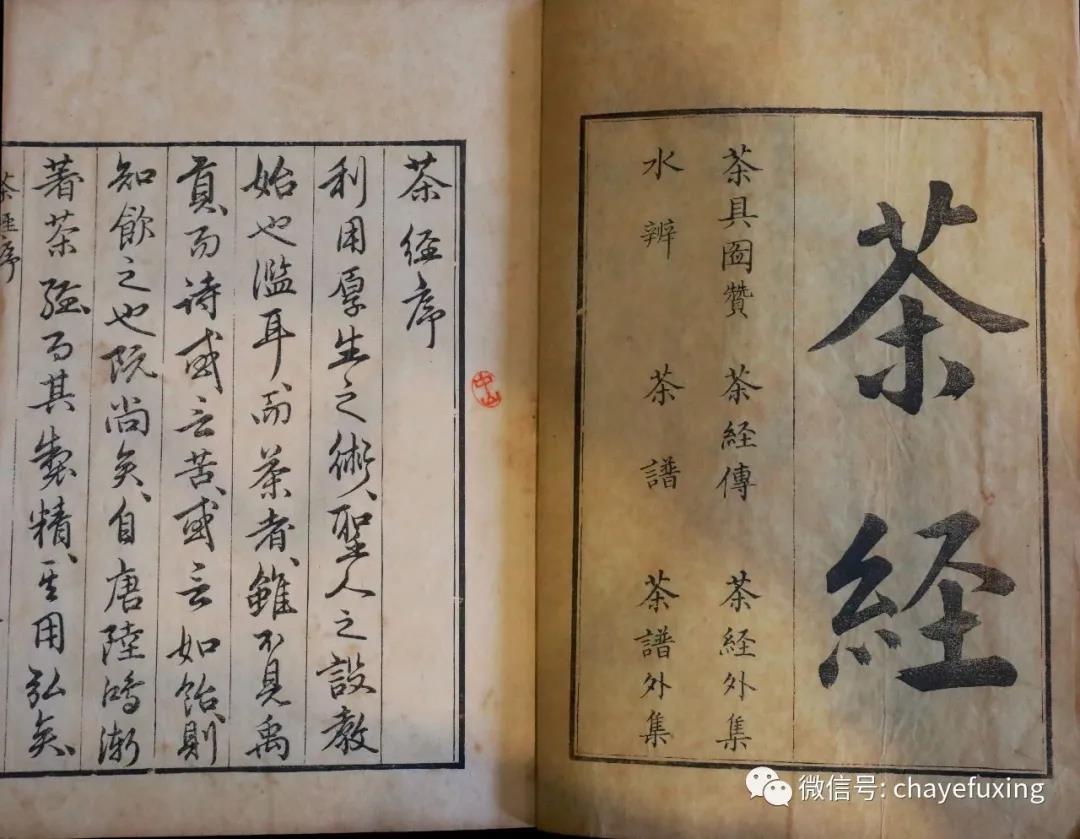 茶経
茶具圖贊 茶経傳 茶経外集
水辨 茶譜 茶譜外集
茶経序
利用厚生之術、聖人之設教
始也濫耳、而茶者、雖不見禹
貢、而詩或言苦、或言如飴、則
知飲之也既尚矣、自唐陸鴻漸
著茶経、而其製精、其用弘矣、
茶経序
中山
微信号: chayefuxing